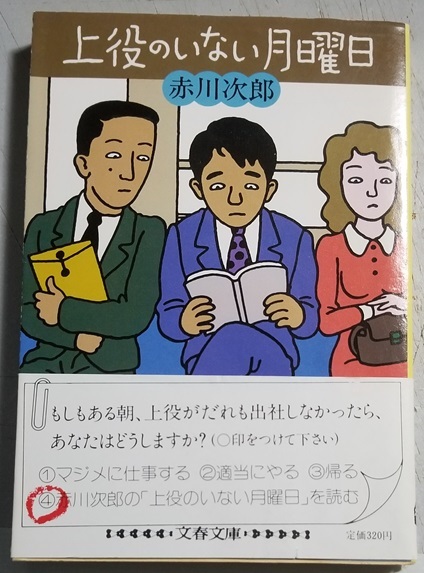 上役のいない月曜日
赤川次郎
もしもある朝、上役がだれも出社しなかったら、
あなたはどうしますか?(○印をつけて下さい)
①マジメに仕事する ②適当にやる ③帰る
④赤川次郎の「上役のいない月曜日」を読む
文春文庫
定価320円